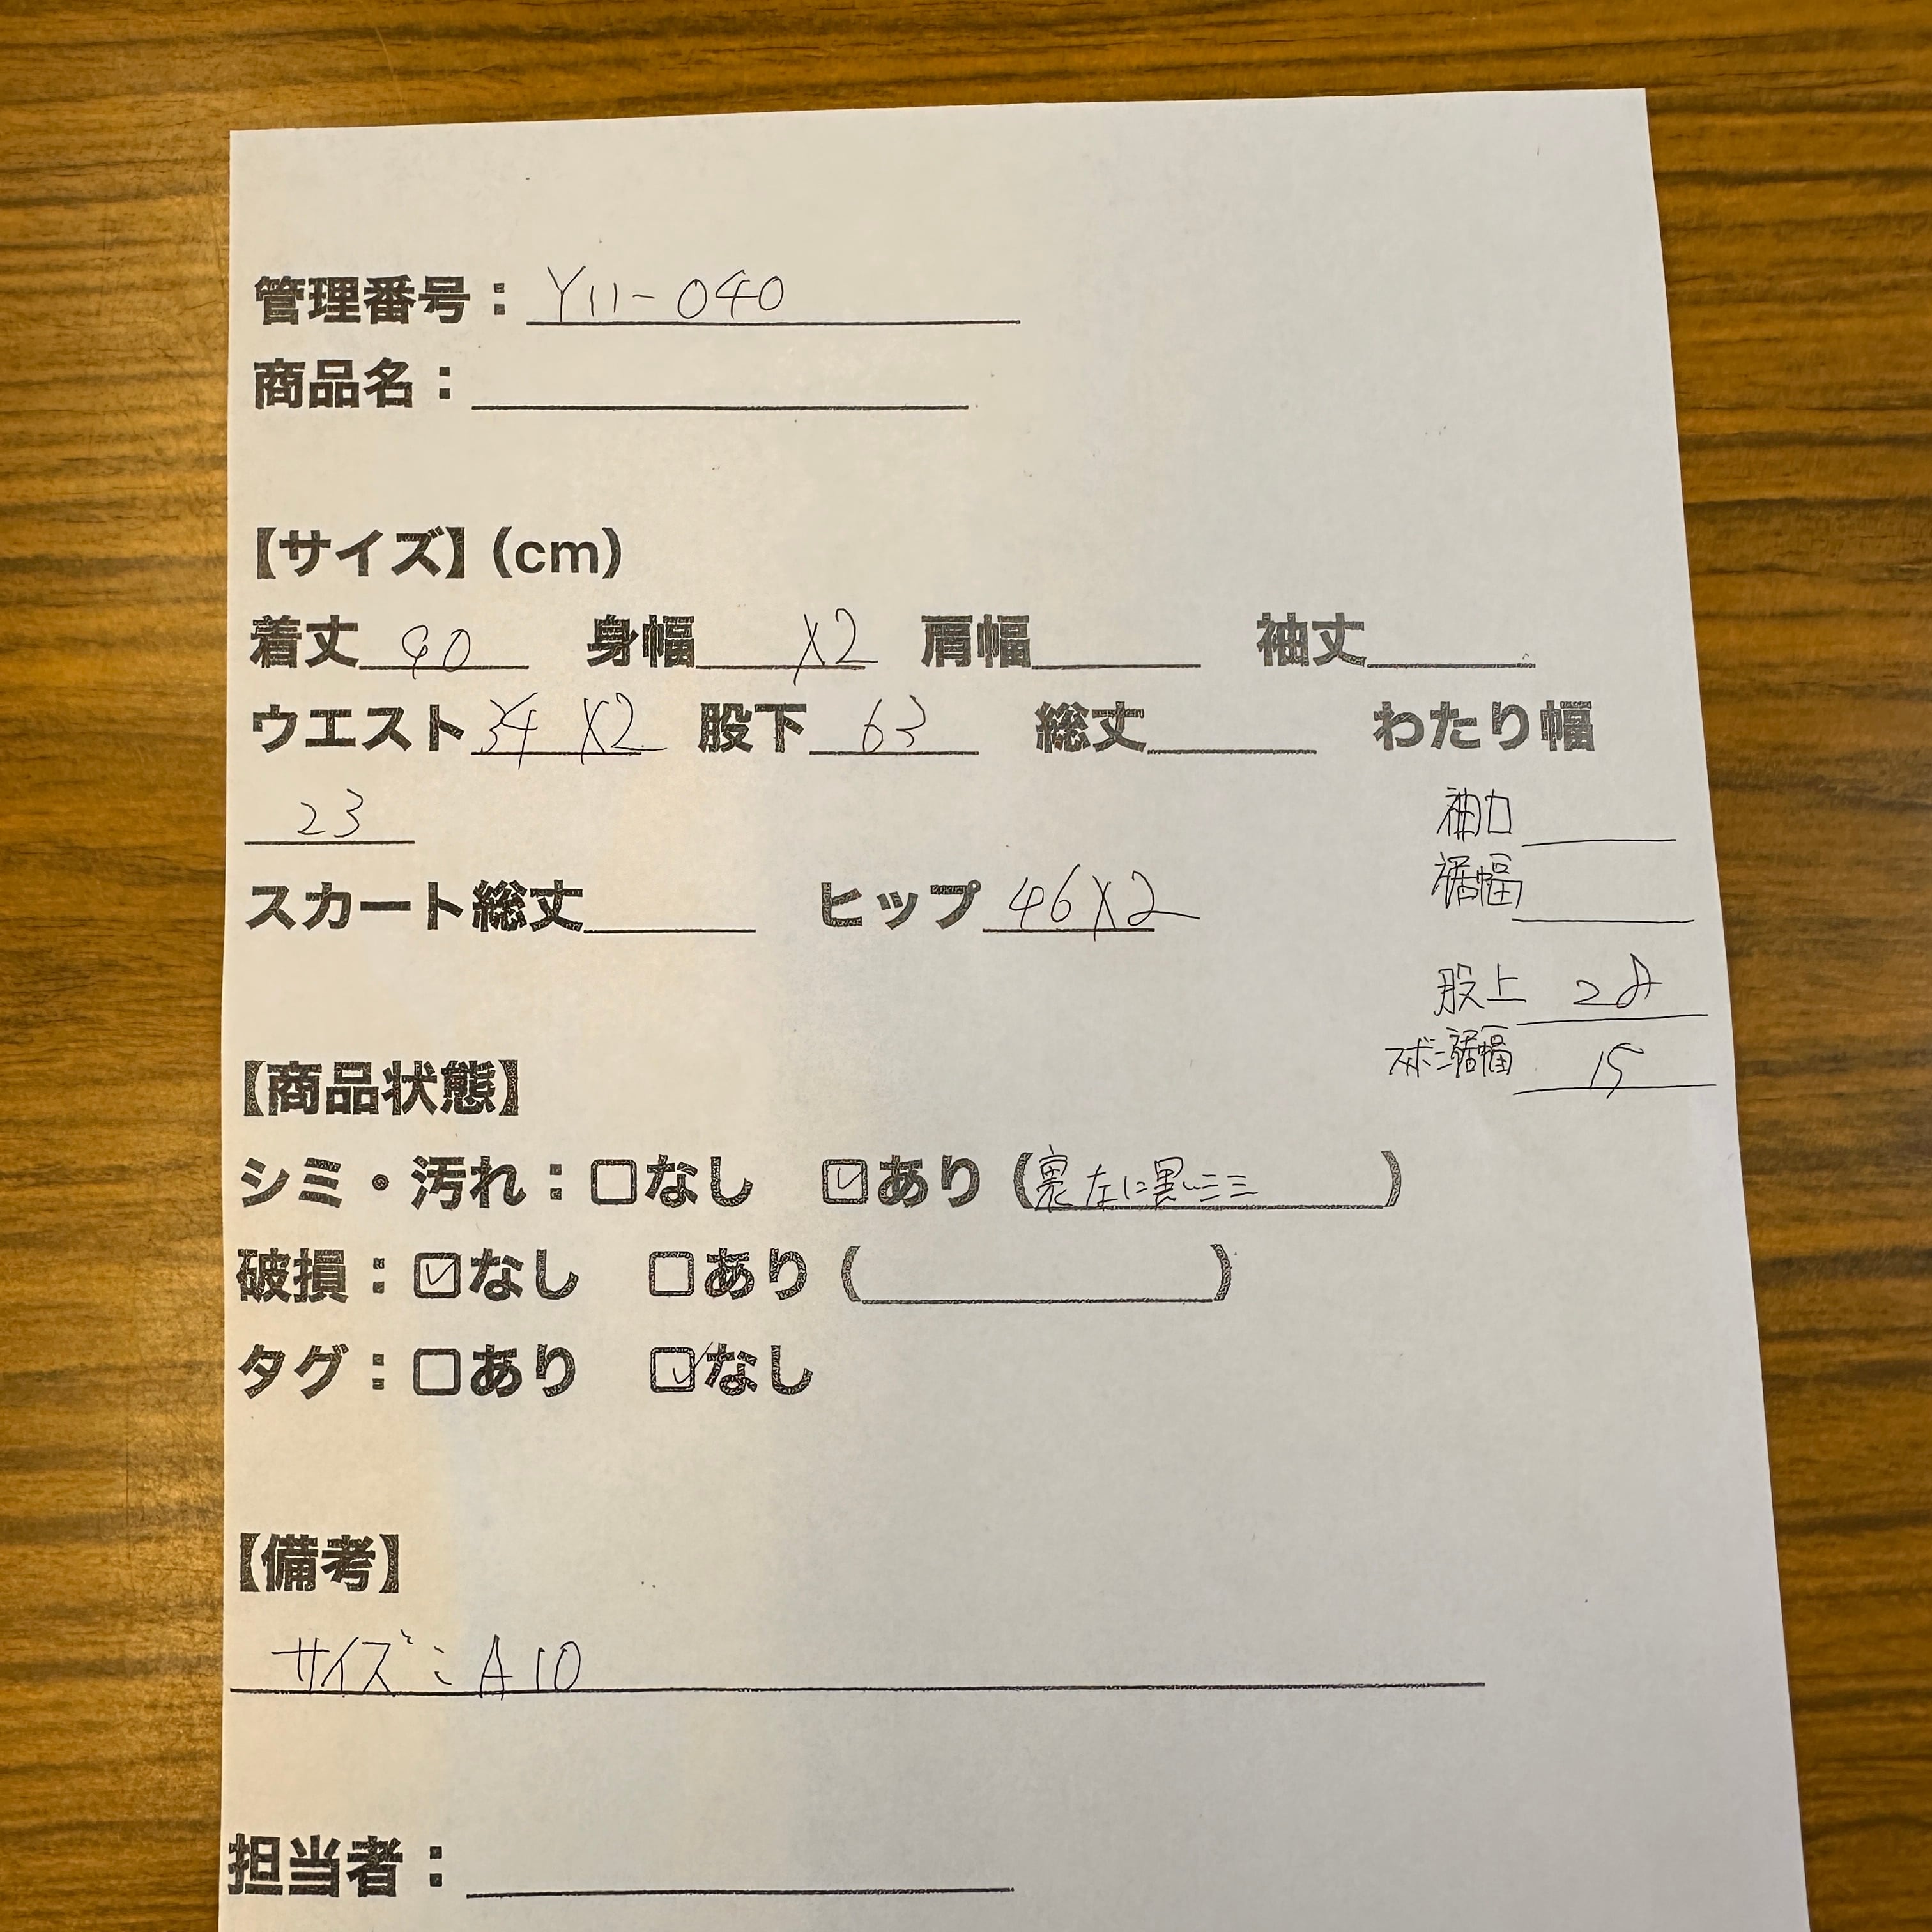 管理番号：Y11-040
商品名：
【サイズ】(cm)
着丈 90 身幅 ×2 肩幅 袖丈
ウエスト 34 ×2 股下 63 総丈 わたり幅
23
袖口
裾幅
スカート総丈 ヒップ 46×2
股上 28
ズボン裾幅 15
【商品状態】
シミ・汚れ：□なし ☑あり（裏左に黒いシミ）
破損：☑なし □あり（ ）
タグ：□あり ☑なし
【備考】
サイズ：A10
担当者：